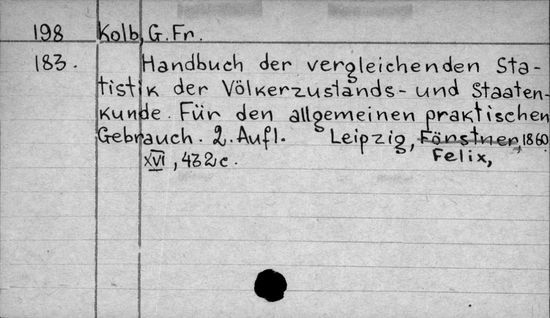 198 Kolb, G. Fr.
183. Handbuch der vergleichenden Sta-
tistik der Völkerzustands- und Staaten-
kunde. Für den allgemeinen praktischen
Gebrauch. 2. Aufl. Leipzig, Förstner, 1860
Felix,
XVI, 432 c.